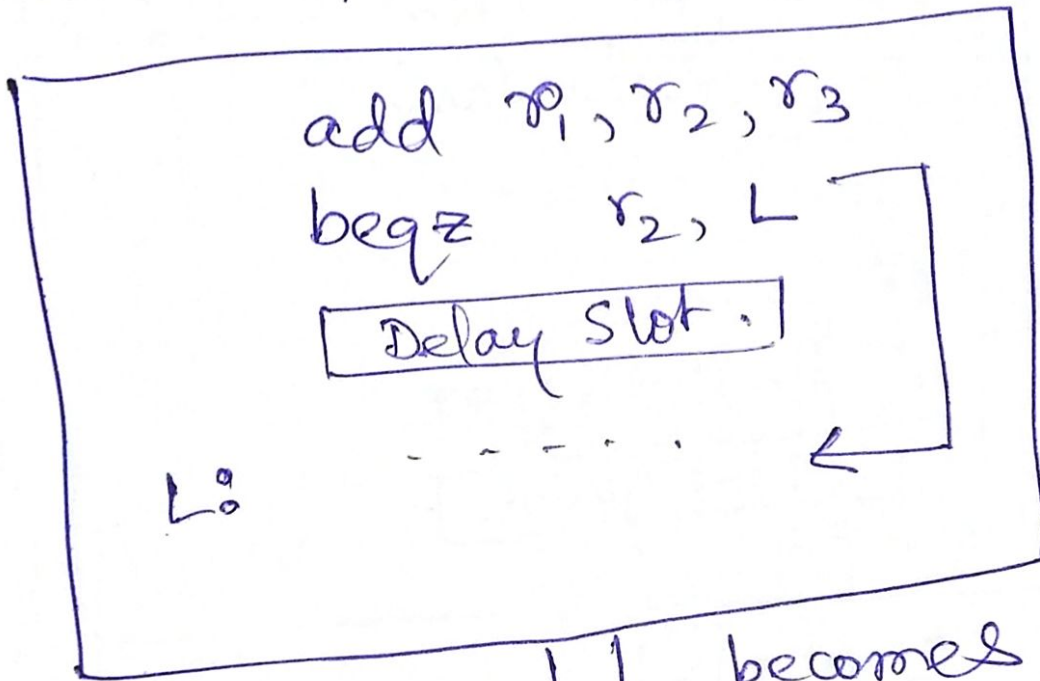 add r1, r2, r3
beqz r2, L
Delay Slot.
- - - - .
L:
becomes